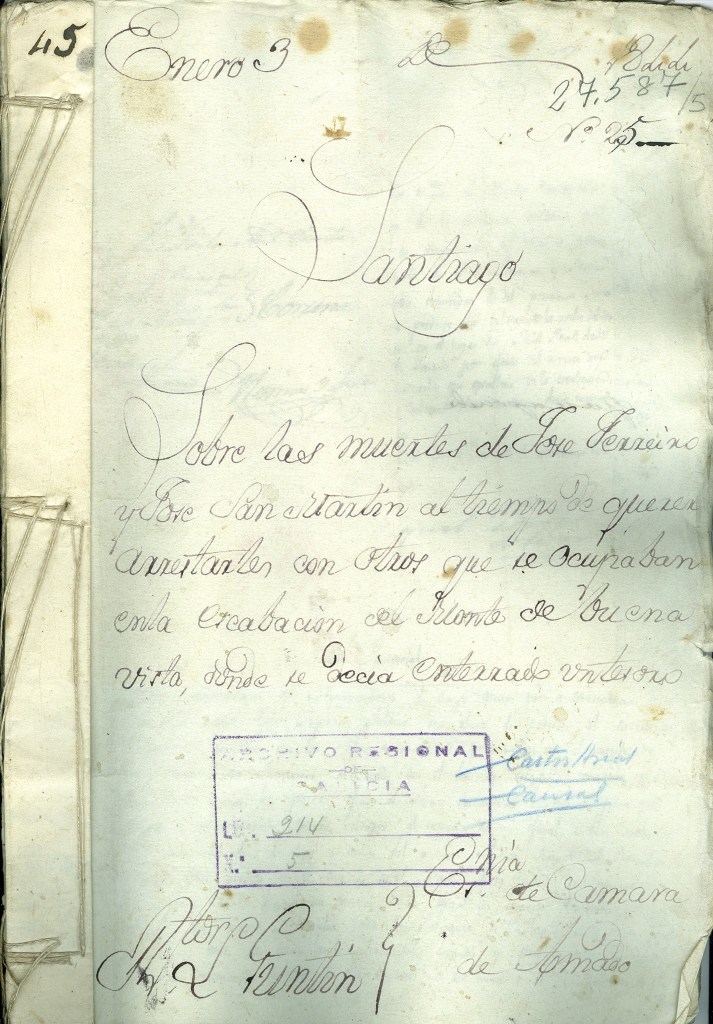 45
Enero 3 De
27.587/5
N.º 25
Santiago
Sobre las muertes de Jose Ferreiro
y Jose San Martin al tiempo de querer
arrestarles con otros que se ocupaban
enla escabacion del Monte de buena
vista, donde se decia enterrado untesoro
ARCHIVO REGIONAL
DE
GALICIA
LEG. 914
N.º 5
Causal
Es.ª de Camara
de Amado